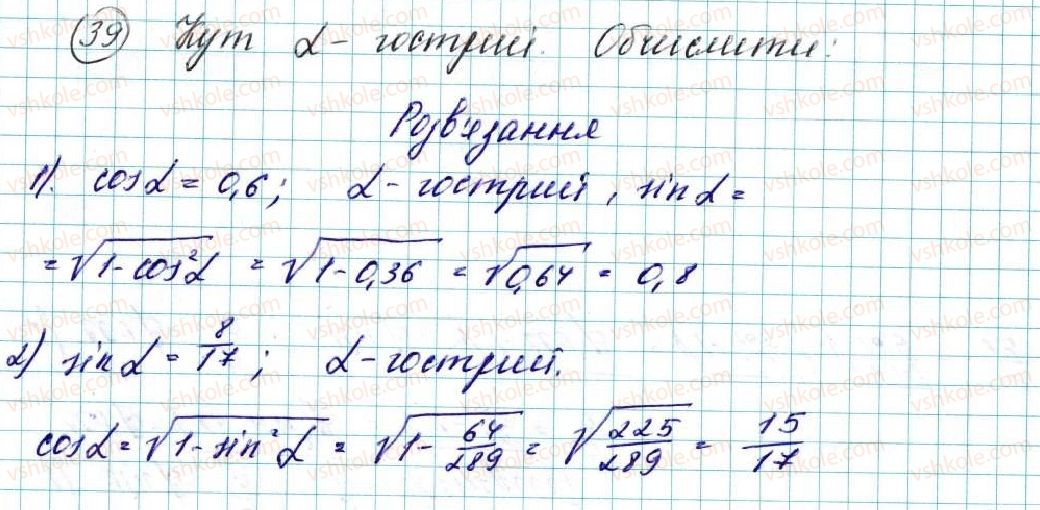 39 Кут α - гострий. Обчислити:
Розв'язання
1). cos α = 0,6; α - гострий, sin α =
= √(1 - cos²α) = √(1 - 0,36) = √0,64 = 0,8
2) sin α = 8/17; α - гострий.
cos α = √(1 - sin²α) = √(1 - 64/289) = √(225/289) = 15/17